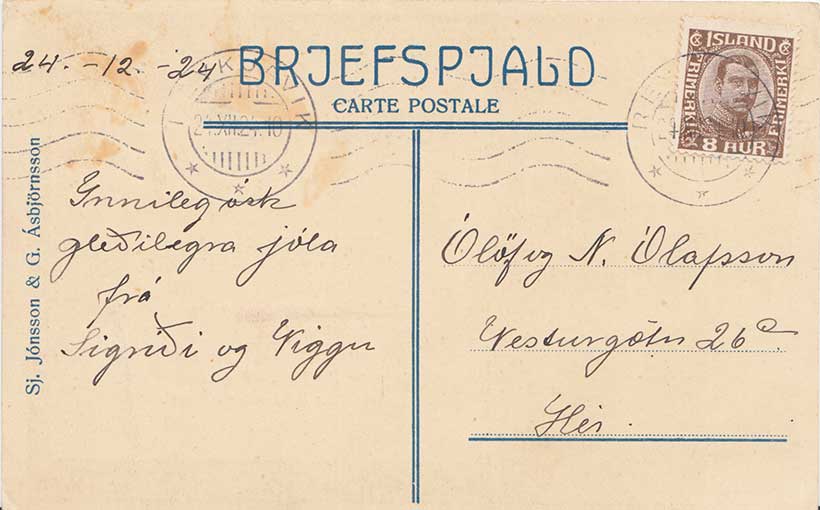 24. -12. -24
BRJEFSPJALD
CARTE POSTALE
ÍSLAND
FRÍMERKI
FRÍMERKI
8 AUR
24.XII.24. 10
Sj. Jónsson & G. Ásbjörnsson
Innileg ósk
gleðilegra jóla
frá
Sigríði og Viggu
Ólöf og N. Ólafsson
Vesturgötu 26c
Hér.